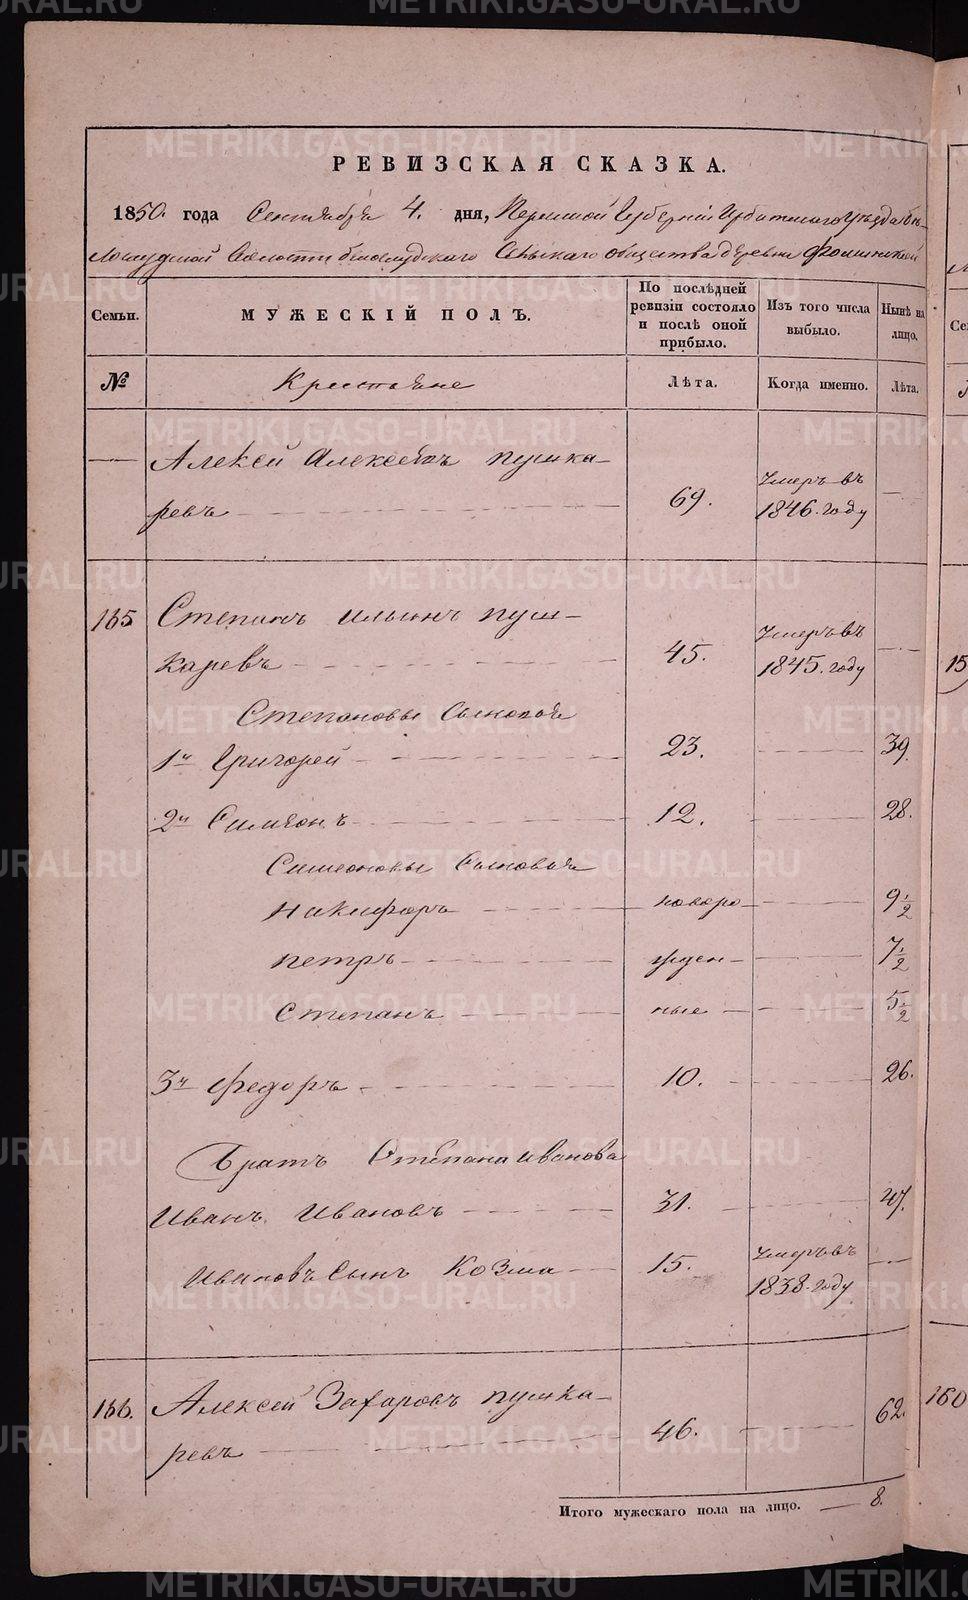 METRIKI.GASO-URAL.RU
РЕВИЗСКАЯ СКАЗКА.
1850. года Сентября 4. дня, Пермской Губернiи Ирбитскаго Уѣзда Бѣ-
лослудской Волости белослудского Сельскаго общества деревни Фоминской
Семьи.
МУЖЕСКІЙ ПОЛЪ.
По послѣдней
ревизіи состояло
и послѣ оной
прибыло.
Изъ того числа
выбыло.
Нынѣ на
лицо.
№
Крестьяне
Лѣта.
Когда именно.
Лѣта.
Алексей Алексѣевъ пушка-
ревъ 69. Умеръ въ
1846. году
165 Степанъ Ильинъ пуш-
каревъ 45. Умеръ въ
1845. году
Степановы Сыновья
1й Григорей 23. 39.
2й Симионъ 12. 28.
Симеоновы Сыновья
Никифоръ новоро 9 1/2
петръ жден 7 1/2
Степанъ ные 5 1/2
3й Федоръ 10. 26.
Братъ Степана Иванова
Иванъ Ивановъ 31. 47.
Ивановъ Сынъ Козма 15. Умеръ въ
1838. году
166. Алексей Захаровъ пушка-
ревъ 46. 62.
Итого мужескаго пола на лицо. 8.
160